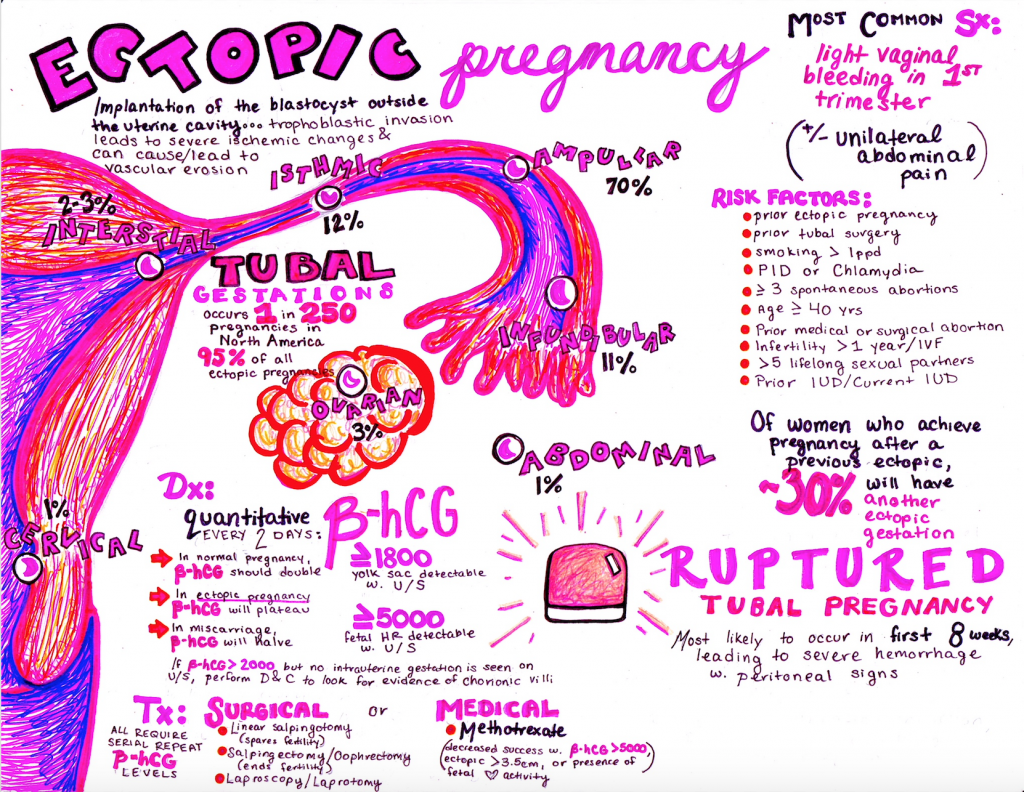 ECTOPIC pregnancy
Implantation of the blastocyst outside
the uterine cavity... trophoblastic invasion
leads to severe ischemic changes &
can cause/lead to
vascular erosion
MOST COMMON SX:
light vaginal
bleeding in 1ST
trimester
(+/- unilateral
abdominal
pain)
ISTHMIC
12%
AMPULLAR
70%
2-3%
INTERSTIAL
INFUNDIBULAR
11%
TUBAL
GESTATIONS
occurs 1 in 250
pregnancies in
North America
95% of all
ectopic pregnancies
OVARIAN
3%
ABDOMINAL
1%
1%
CERVICAL
RISK FACTORS:
prior ectopic pregnancy
prior tubal surgery
smoking > 1ppd
PID or Chlamydia
≥ 3 spontaneous abortions
Age ≥ 40 yrs
Prior medical or surgical abortion
Infertility > 1 year/IVF
>5 lifelong sexual partners
Prior IUD/Current IUD
Of women who achieve
pregnancy after a
previous ectopic,
~30% will have
another
ectopic
gestation
Dx:
quantitative
EVERY 2 DAYS:
β-hCG
In normal pregnancy,
β-hCG should double
In ectopic pregnancy
β-hCG will plateau
In miscarriage,
β-hCG will halve
≥1800
yolk sac detectable
w. U/S
≥5000
fetal HR detectable
w. U/S
If β-hCG > 2000, but no intrauterine gestation is seen on
U/S, perform D&C to look for evidence of chorionic villi
RUPTURED
TUBAL PREGNANCY
Most likely to occur in first 8 weeks,
leading to severe hemorrhage
w. peritoneal signs
Tx:
ALL REQUIRE
SERIAL REPEAT
β-hCG
LEVELS
SURGICAL
Linear salpingotomy
(spares fertility)
Salpingectomy/Oophrectomy
(ends fertility)
Laproscopy/Laprotomy
or
MEDICAL
Methotrexate
(decreased success w. β-hCG >5000,
ectopic >3.5cm, or presence of
fetal ♡ activity)